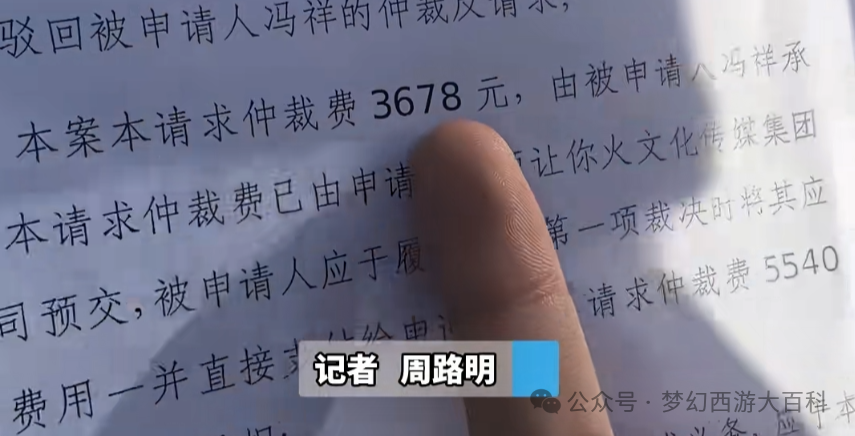 驳回被申请人冯祥的仲裁反请求,
本案本请求仲裁费 3678 元，由被申请人冯祥承
本请求仲裁费已由申请 让你火文化传媒集团
司预交，被申请人应于履 第一项裁决时将其应
费用一并直接支付给申 请求仲裁费 5540
记者 周路明
公众号 · 梦幻西游大百科